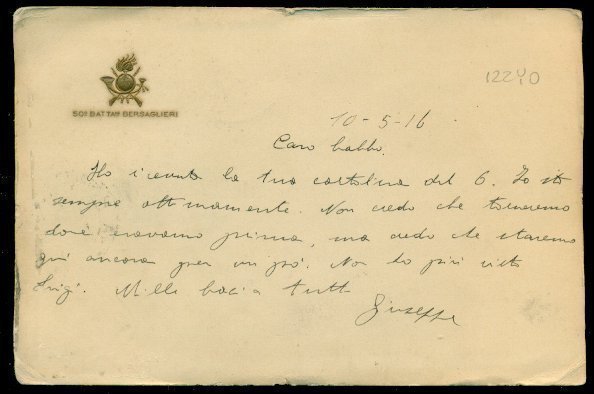 50º BATTAᵍⁿᵉ BERSAGLIERI
12240
10-5-16
Caro babbo.
Ho ricevuto la tua cartolina del 6. Io sto
sempre ottimamente. Non credo che torneremo
dove eravamo prima, ma credo che staremo
qui ancora per un pò. Non ho più visto
Luigi. Mille baci a tutti
Giuseppe